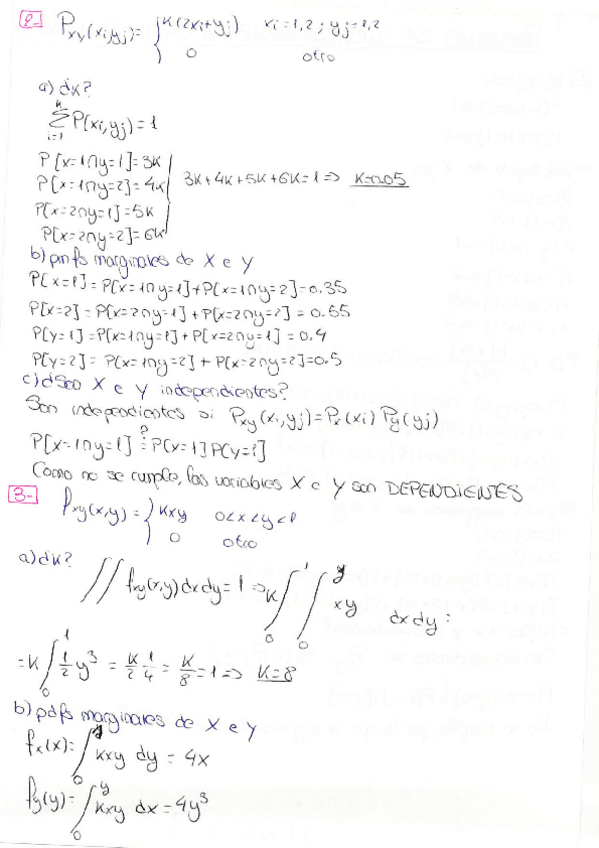 2- Pxy(xi,yj)= { K(2xi+yj) xi=1,2 ; yj=1,2
0 otro
a) ¿K?
∑ P(xi,yj)=1
i=1
P[x=1∩y=1]=3K
P[x=1∩y=2]=4K
3K+4K+5K+6K=1 => K=0.05
P[x=2∩y=1]=5K
P[x=2∩y=2]=6K
b) pmfs marginales de X e Y
P[x=1]=P[x=1∩y=1]+P[x=1∩y=2]=0.35
P[x=2]=P[x=2∩y=1]+P[x=2∩y=2]=0.55
P[y=1]=P[x=1∩y=1]+P[x=2∩y=1]=0.4
P[y=2]=P[x=1∩y=2]+P[x=2∩y=2]=0.5
c) ¿Son X e Y independientes?
Son independientes si Pxy(xi,yj)=Px(xi) Py(yj)
P[x=1∩y=1] ?= P[x=1]P[y=1]
Como no se cumple, las variables X e Y son DEPENDIENTES
3- fxy(x,y)= { Kxy 0<x<y<1
0 otro
a) ¿K?
∫∫ fxy(x,y)dxdy=1 => K ∫₀¹ ∫₀ʸ xy dxdy =
=K ∫₀¹ 1/2 y³ = K/2 1/4 = K/8 =1 => K=8
b) pdfs marginales de X e Y
fx(x)= ∫₀ Kxy dy = 4x
fy(y)= ∫₀ʸ Kxy dx = 4y³